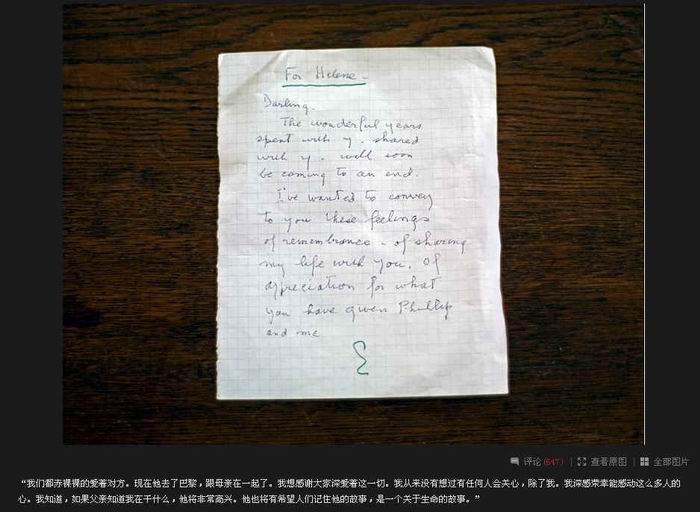 For Helene -
Darling.
The wonderful years
spent with y. shared
with y. will soon
be coming to an end.
I've wanted to convey
to you these feelings
of remembrance - of sharing
my life with you. Of
appreciation for what
you have given Phillip
and me
评论(547) | 查看原图 | 全部图片
“我们都赤裸裸的爱着对方。现在他去了巴黎，跟母亲在一起了。我想感谢大家深爱着这一切。我从来没有想过有任何人会关心，除了我。我深感荣幸能感动这么多人的
心。我知道，如果父亲知道我在干什么，他将非常高兴。他也将有希望人们记住他的故事，是一个关于生命的故事。”